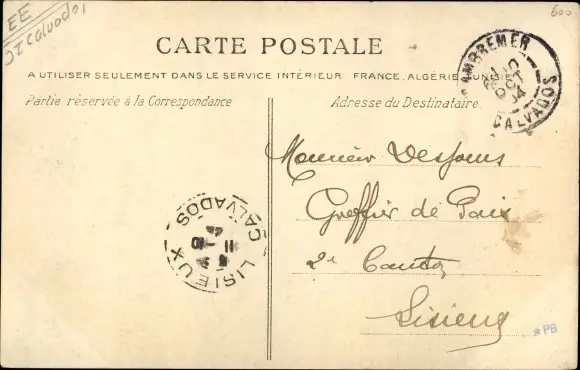 EE
Calvados
600
CARTE POSTALE
A UTILISER SEULEMENT DANS LE SERVICE INTÉRIEUR FRANCE, ALGÉRIE, TUNIS
Partie réservée à la Correspondance
Adresse du Destinataire
CAMBREMER
10
OCT
04
CALVADOS
LISIEUX
11 -10
04
CALVADOS
Monsieur Desjours
Greffier de Paix
2e Canton
Lisieux
*PB